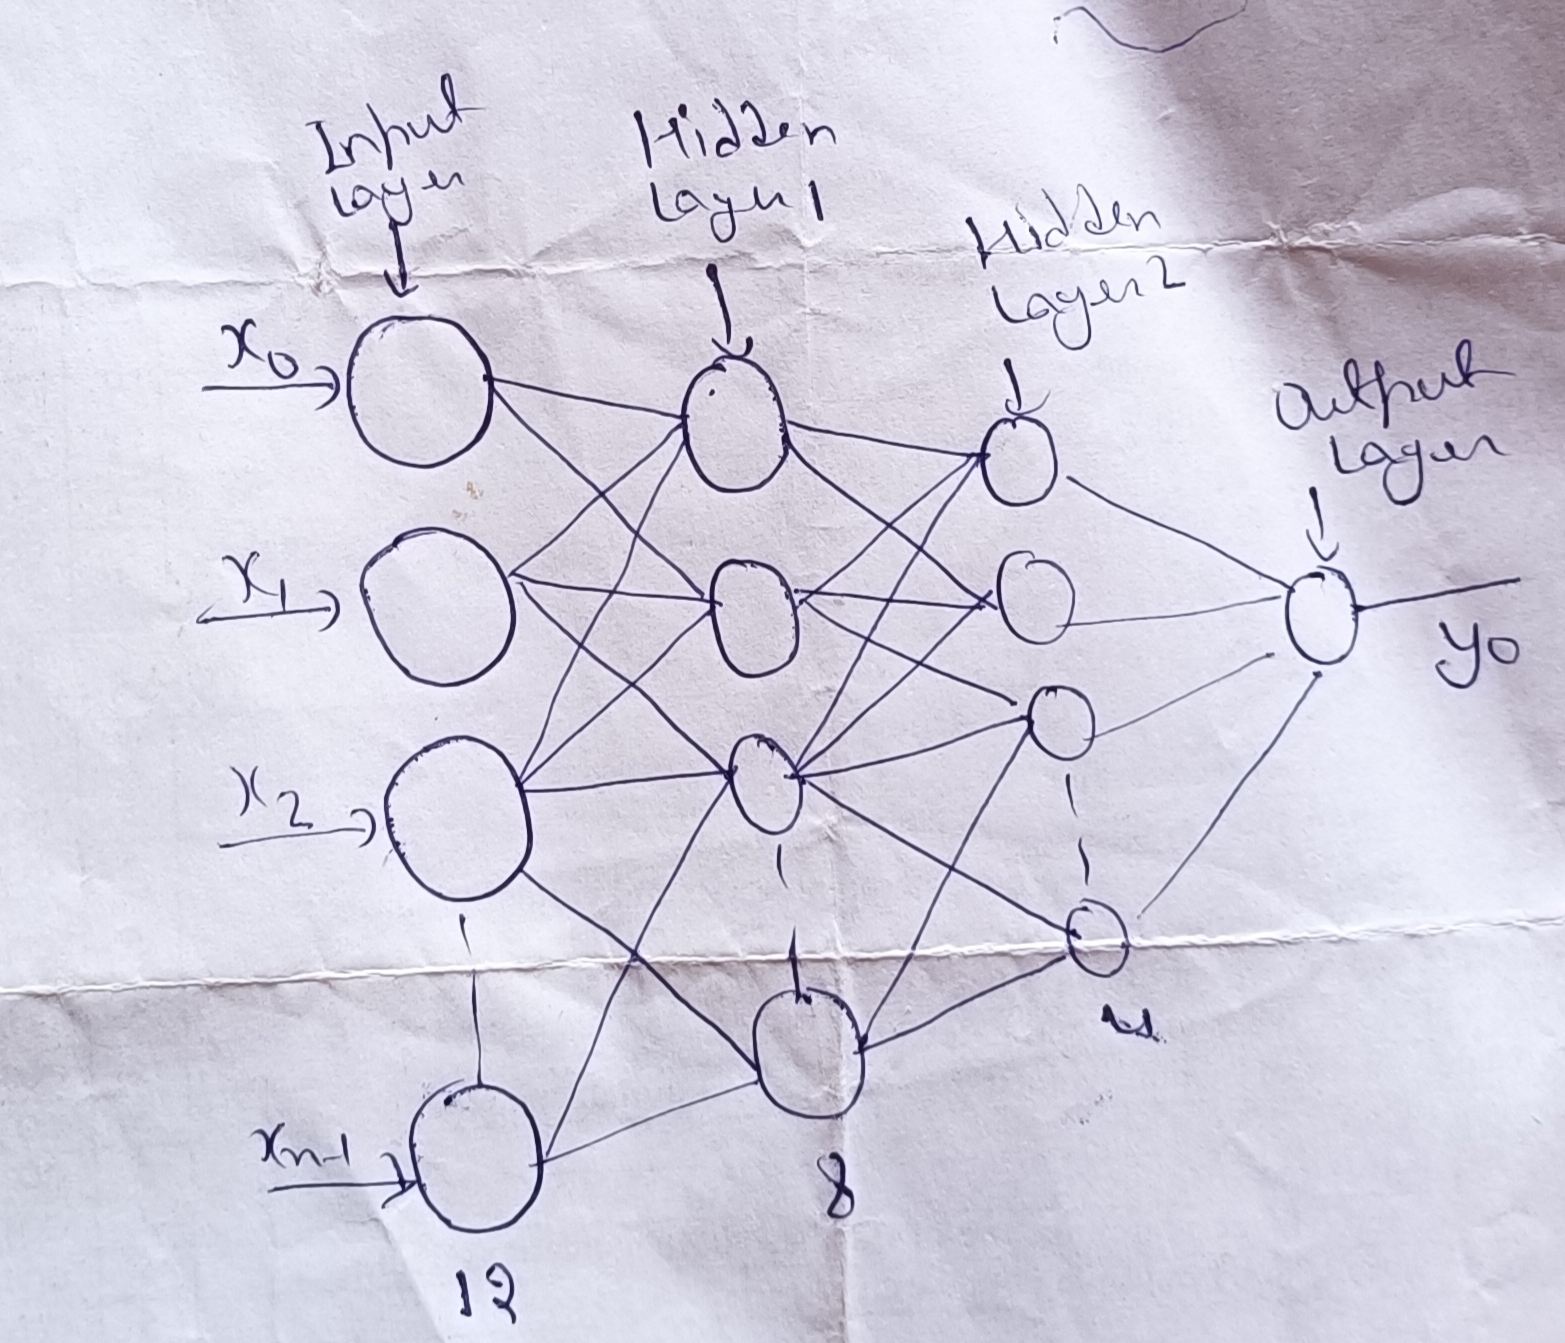 Input
Layer
Hidden
Layer 1
Hidden
Layer 2
Output
Layer
x0
x1
x2
xn-1
y0
12
8
4